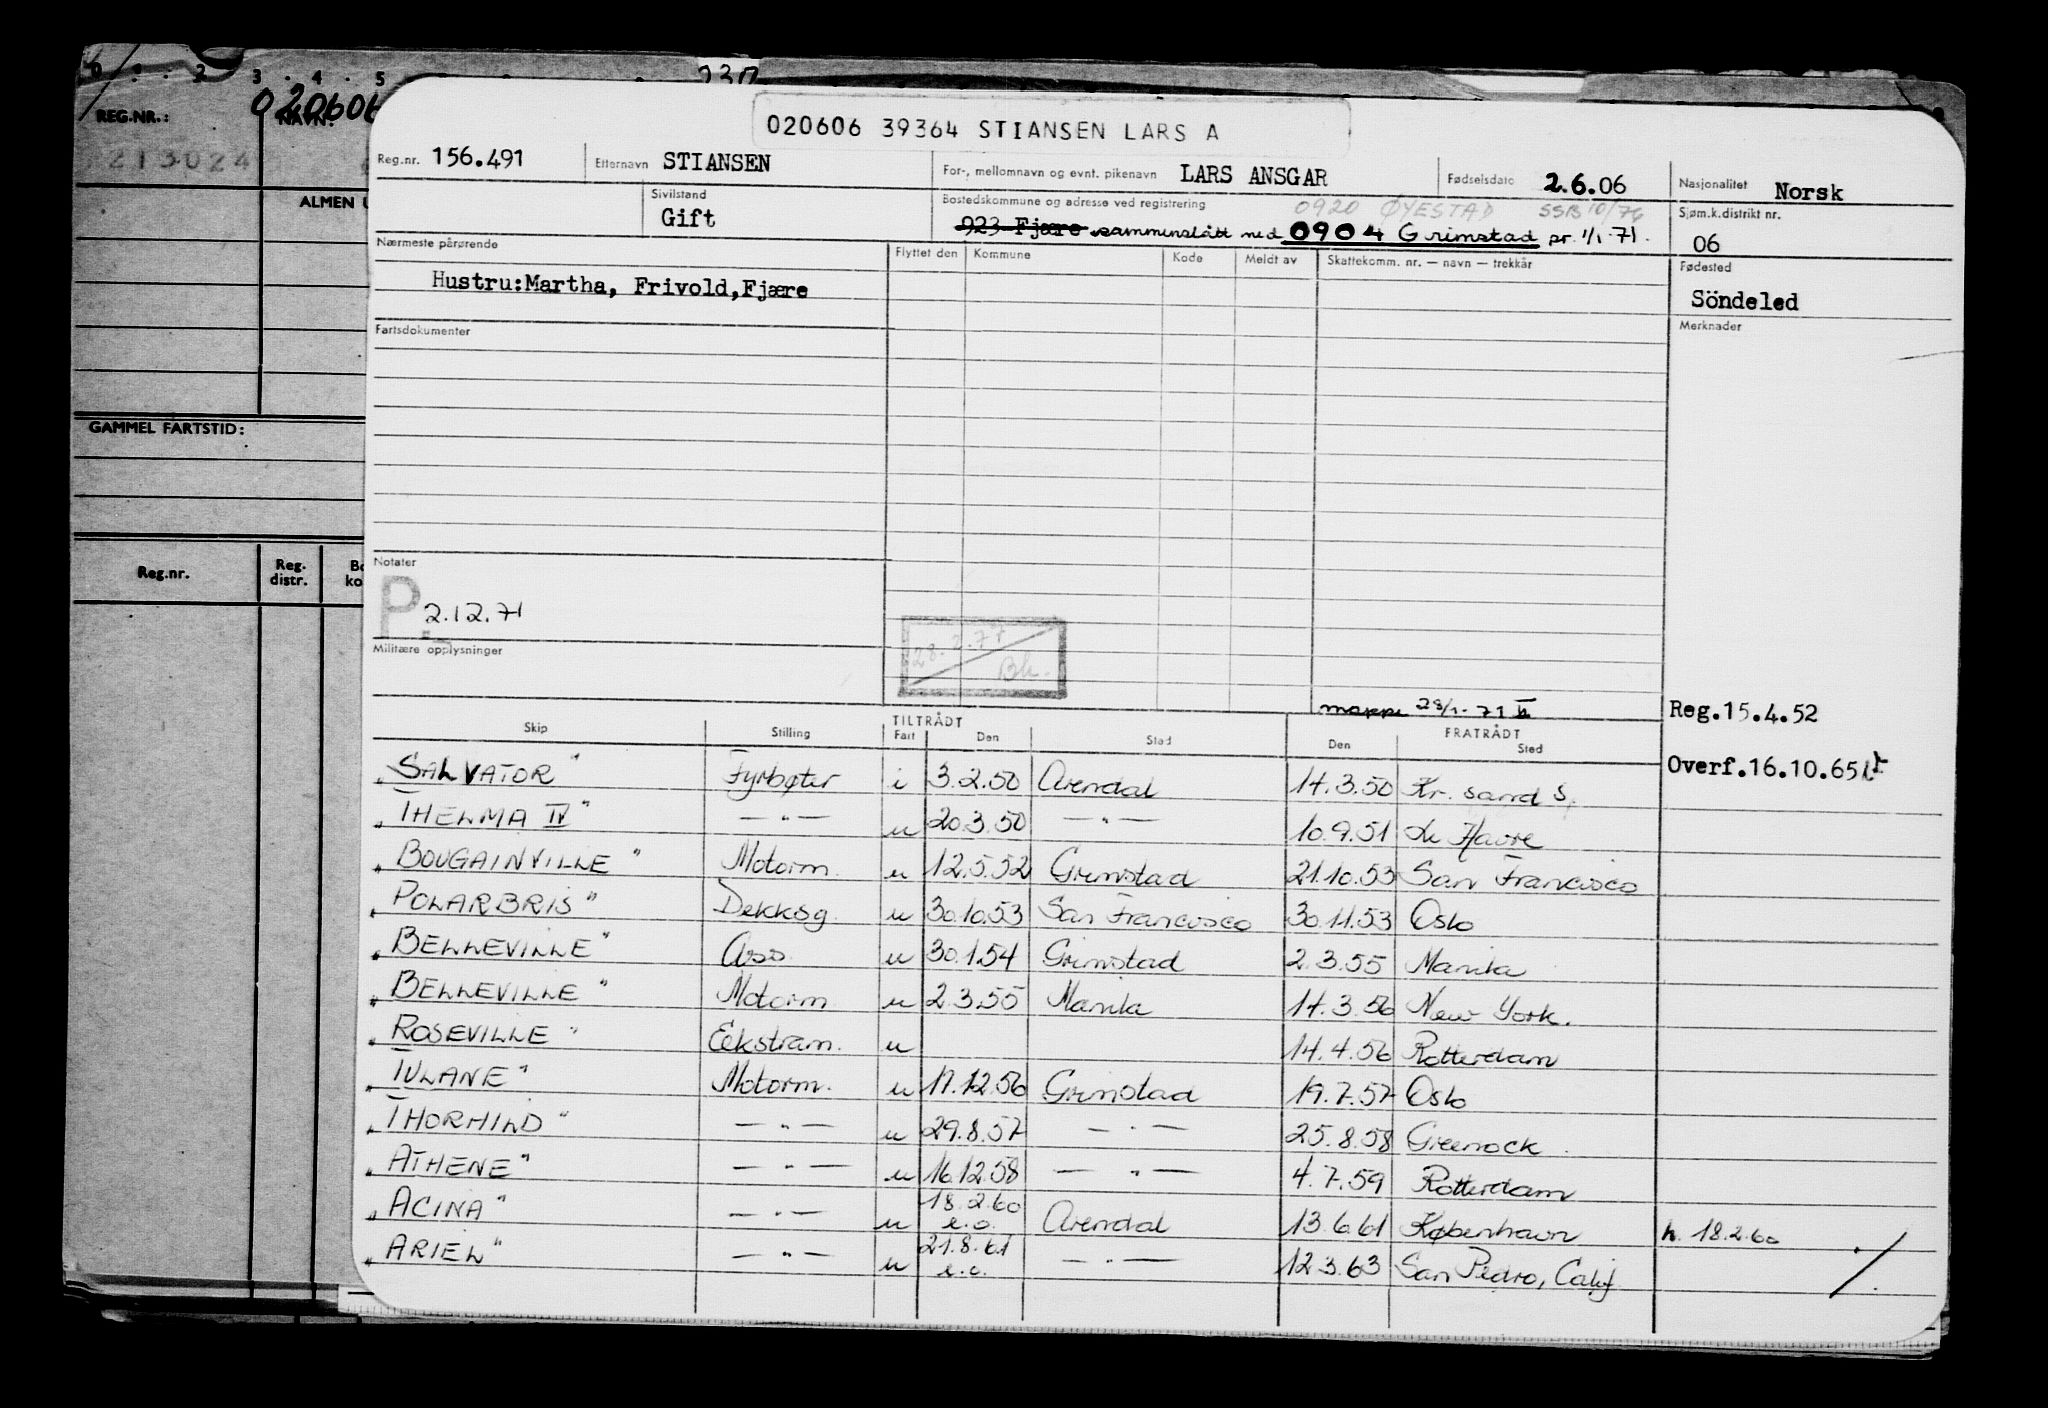 0 · 2 3 · 4 · 5
REG.NR.: 020606 NAVN:
213024
ALMEN
GAMMEL FARTSTID:
Reg.nr. Reg. distr.
020606 39364 STIANSEN LARS A
Reg.nr. 156.491 Etternavn STIANSEN For-, mellomnavn og evnt. pikenavn LARS ANSGAR Fødselsdato 2.6.06 Nasjonalitet Norsk
Sivilstand Gift Bostedskommune og adresse ved registrering 0920 ØYESTAD SSB 10/76 Sjøm.k.distrikt nr. 06
923 Fjære sammenslått med 0904 Grimstad pr. 1/1-71.
Nærmeste pårørende Flyttet den Kommune Kode Meldt av Skattekomm. nr. — navn — trekkår Fødested
Hustru:Martha, Frivold,Fjære Söndeled
Fartsdokumenter Merknader
Notater
P. 2.12.71
28.2.77 Bh.
Militære opplysninger
mappe 23/1-71 Reg.15.4.52
Skip Stilling TILTRÅDT Fart Den Sted FRATRÅDT Den Sted
Overf.16.10.65
„SALVATOR" Fyrbøter i 3.2.50 Arendal 14.3.50 Kr. sand S.
„THELMA IV" — " — u 20.3.50 — " — 10.9.51 Le Havre
„BOUGAINVILLE" Motorm. u 12.5.52 Grimstad 21.10.53 San Francisco
„POLARBRIS" Dekksg. u 30.10.53 San Francisco 30.11.53 Oslo
„BELLEVILLE" Ass. u 30.1.54 Grimstad 2.3.55 Manila
„BELLEVILLE" Motorm. u 2.3.55 Manila 14.3.56 New York.
„ROSEVILLE" Eekstram. u 14.4.56 Rotterdam
„TULANE" Motorm. u 17.12.56 Grimstad 19.7.57 Oslo
„THORHILD" — " — u 29.8.57 — " — 25.8.58 Greenock.
„ATHENE" — " — u 16.12.58 — " — 4.7.59 Rotterdam
„ACINA" — " — u 18.2.60 e.o. Arendal 13.6.61 København h. 18.2.60
„ARIEL" — " — u 21.8.61 e.o. — " — 12.3.63 San Pedro, Calif.